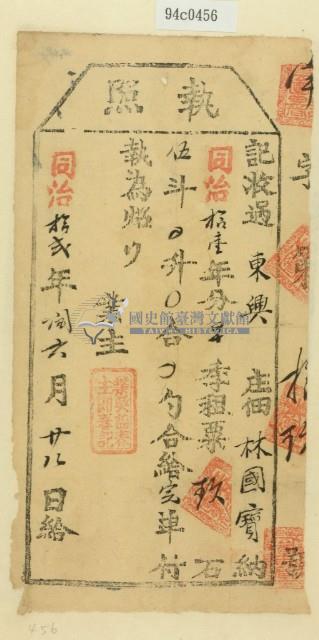 94c0456
執照
字第拾玖號
記收過東興庄佃林國寶納
同治拾壹年分季租粟玖石
伍斗〇升〇合〇勺合給完單付
執為炤
業主
同治拾貳年閏六月廿八日給
國史館臺灣文獻館
TAIWAN HISTORICA
456